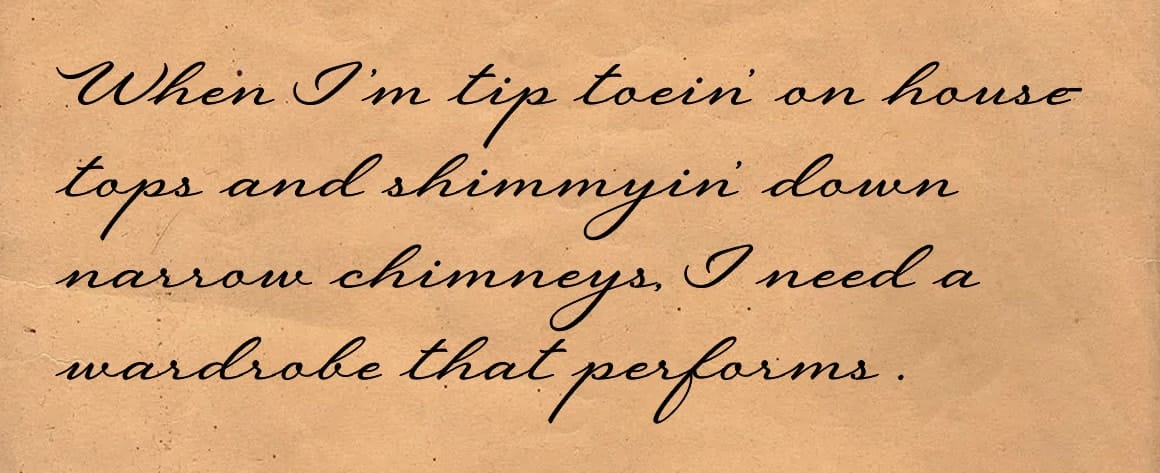 When I'm tip toein' on house
tops and shimmyin' down
narrow chimneys, I need a
wardrobe that performs .